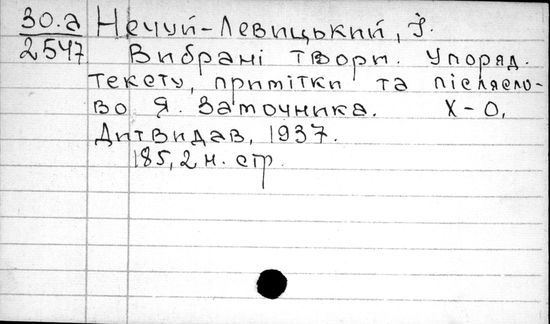 30.а
2547
Нечуй-Левицький, І.
Вибрані твори. Упоряд.
тексту, примітки та післясло-
во Я. Заточника. Х-О,
Дитвидав, 1937.
185, 2 н. стр.